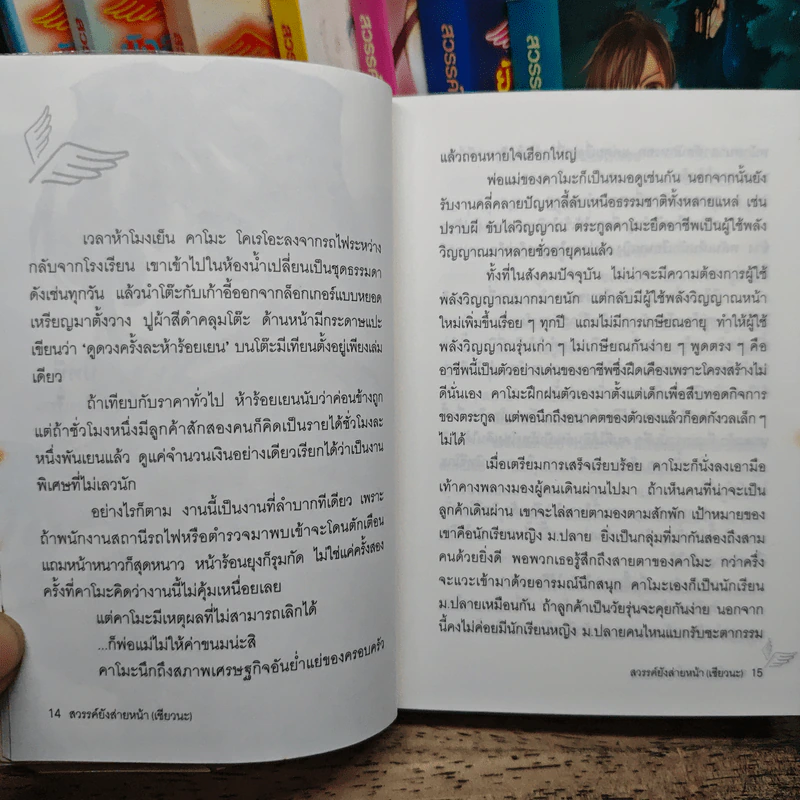 สวรรค์
สวรรค์
สวรรค์
เวลาห้าโมงเย็น คาโมะ โคเรโอะลงจากรถไฟระหว่าง
กลับจากโรงเรียน เขาเข้าไปในห้องน้ำเปลี่ยนเป็นชุดธรรมดา
ดังเช่นทุกวัน แล้วนำโต๊ะกับเก้าอี้ออกจากล็อกเกอร์แบบหยอด
เหรียญมาตั้งวาง ปูผ้าสีดำคลุมโต๊ะ ด้านหน้ามีกระดาษแปะ
เขียนว่า ‘ดูดวงครั้งละห้าร้อยเยน’ บนโต๊ะมีเทียนตั้งอยู่เพียงเล่ม
เดียว
ถ้าเทียบกับราคาทั่วไป ห้าร้อยเยนนับว่าค่อนข้างถูก
แต่ถ้าชั่วโมงหนึ่งมีลูกค้าสักสองคนก็คิดเป็นรายได้ชั่วโมงละ
หนึ่งพันเยนแล้ว ดูแค่จำนวนเงินอย่างเดียวเรียกได้ว่าเป็นงาน
พิเศษที่ไม่เลวนัก
อย่างไรก็ตาม งานนี้เป็นงานที่ลำบากทีเดียว เพราะ
ถ้าพนักงานสถานีรถไฟหรือตำรวจมาพบเข้าจะโดนตักเตือน
แถมหน้าหนาวก็สุดหนาว หน้าร้อนยุงก็รุมกัด ไม่ใช่แค่ครั้งสอง
ครั้งที่คาโมะคิดว่างานนี้ไม่คุ้มเหนื่อยเลย
แต่คาโมะมีเหตุผลที่ไม่สามารถเลิกได้
...ก็พ่อแม่ไม่ให้ค่าขนมน่ะสิ
คาโมะนึกถึงสภาพเศรษฐกิจอันย่ำแย่ของครอบครัว
14 สวรรค์ยังส่ายหน้า (เซียวนะ)
แล้วถอนหายใจเฮือกใหญ่
พ่อแม่ของคาโมะก็เป็นหมอดูเช่นกัน นอกจากนั้นยัง
รับงานคลี่คลายปัญหาลี้ลับเหนือธรรมชาติทั้งหลายแหล่ เช่น
ปราบผี ขับไล่วิญญาณ ตระกูลคาโมะยึดอาชีพเป็นผู้ใช้พลัง
วิญญาณมาหลายชั่วอายุคนแล้ว
ทั้งที่ในสังคมปัจจุบัน ไม่น่าจะมีความต้องการผู้ใช้
พลังวิญญาณมากมายนัก แต่กลับมีผู้ใช้พลังวิญญาณหน้า
ใหม่เพิ่มขึ้นเรื่อย ๆ ทุกปี แถมไม่มีการเกษียณอายุ ทำให้ผู้ใช้
พลังวิญญาณรุ่นเก่า ๆ ไม่เกษียณกันง่าย ๆ พูดตรง ๆ คือ
อาชีพนี้เป็นตัวอย่างเด่นของอาชีพซึ่งฝืดเคืองเพราะโครงสร้างไม่
ดีนั่นเอง คาโมะฝึกฝนตัวเองมาตั้งแต่เด็กเพื่อสืบทอดกิจการ
ของตระกูล แต่พอนึกถึงอนาคตของตัวเองแล้วก็อดกังวลเล็ก ๆ
ไม่ได้
เมื่อเตรียมการเสร็จเรียบร้อย คาโมะก็นั่งลงเอามือ
เท้าคางพลางมองผู้คนเดินผ่านไปมา ถ้าเห็นคนที่น่าจะเป็น
ลูกค้าเดินผ่าน เขาจะไล่สายตามองตามสักพัก เป้าหมายของ
เขาคือนักเรียนหญิง ม.ปลาย ยิ่งเป็นกลุ่มที่มากันสองถึงสาม
คนด้วยยิ่งดี พอพวกเธอรู้สึกถึงสายตาของคาโมะ กว่าครึ่ง
จะแวะเข้ามาด้วยอารมณ์นึกสนุก คาโมะเองก็เป็นนักเรียน
ม.ปลายเหมือนกัน ถ้าลูกค้าเป็นวัยรุ่นจะคุยกันง่าย นอกจาก
นี้คงไม่ค่อยมีนักเรียนหญิง ม.ปลายคนไหนแบกรับชะตากรรม
สวรรค์ยังส่ายหน้า (เซียวนะ) 15